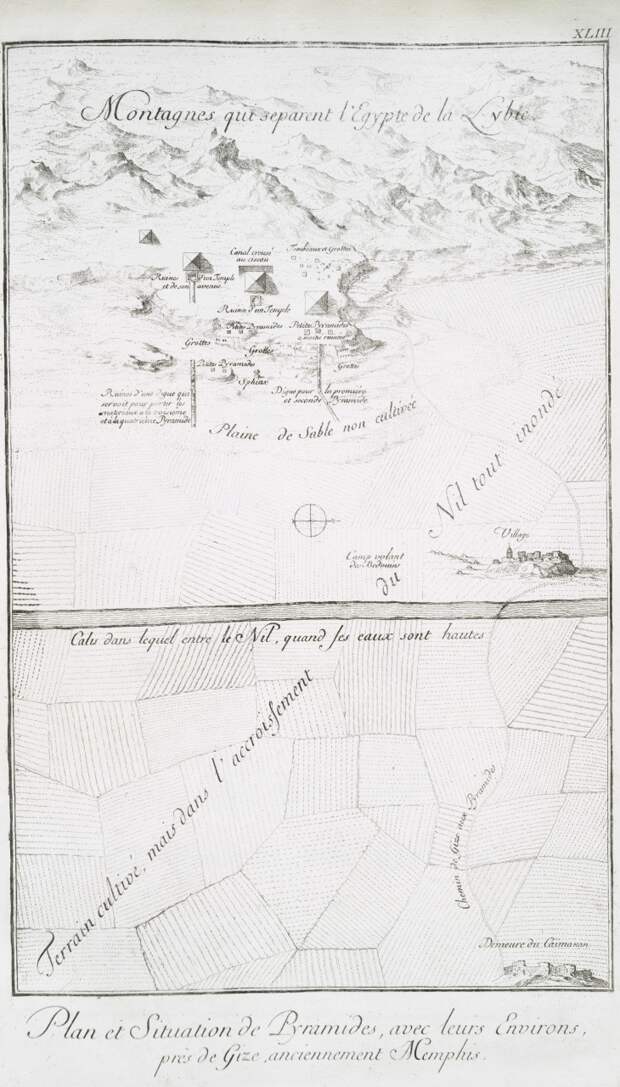 XLIII
Montagnes qui separent l'Egypte de la Lybie.
Canal creusé
au ciseau
Tombeaux et Grottes
Ruines d'un Temple
et de son avenue
Ruines d'un Temple
Petites Pyramides
Petites Pyramides
a moitie ruinées
Grottes
Grottes
Grottes
Petites Pyramides
Sphinx
Ruines d'une digue qui
servoit pour porter les
materiaux a la troisieme
et à la quatrieme Pyramide
Digue pour la premiere
et seconde Pyramide
Plaine de Sable non cultivée
Terrain cultivé, mais dans l'accroissement du Nil tout inondé
Village
Camp volant
de Bedouins
Calis dans lequel entre le Nil, quand ses eaux sont hautes
Chemin de Gize aux Pyramides
Demeure du Caimakan
Plan et Situation de Pyramides, avec leurs Environs,
près de Gize, anciennement Memphis.